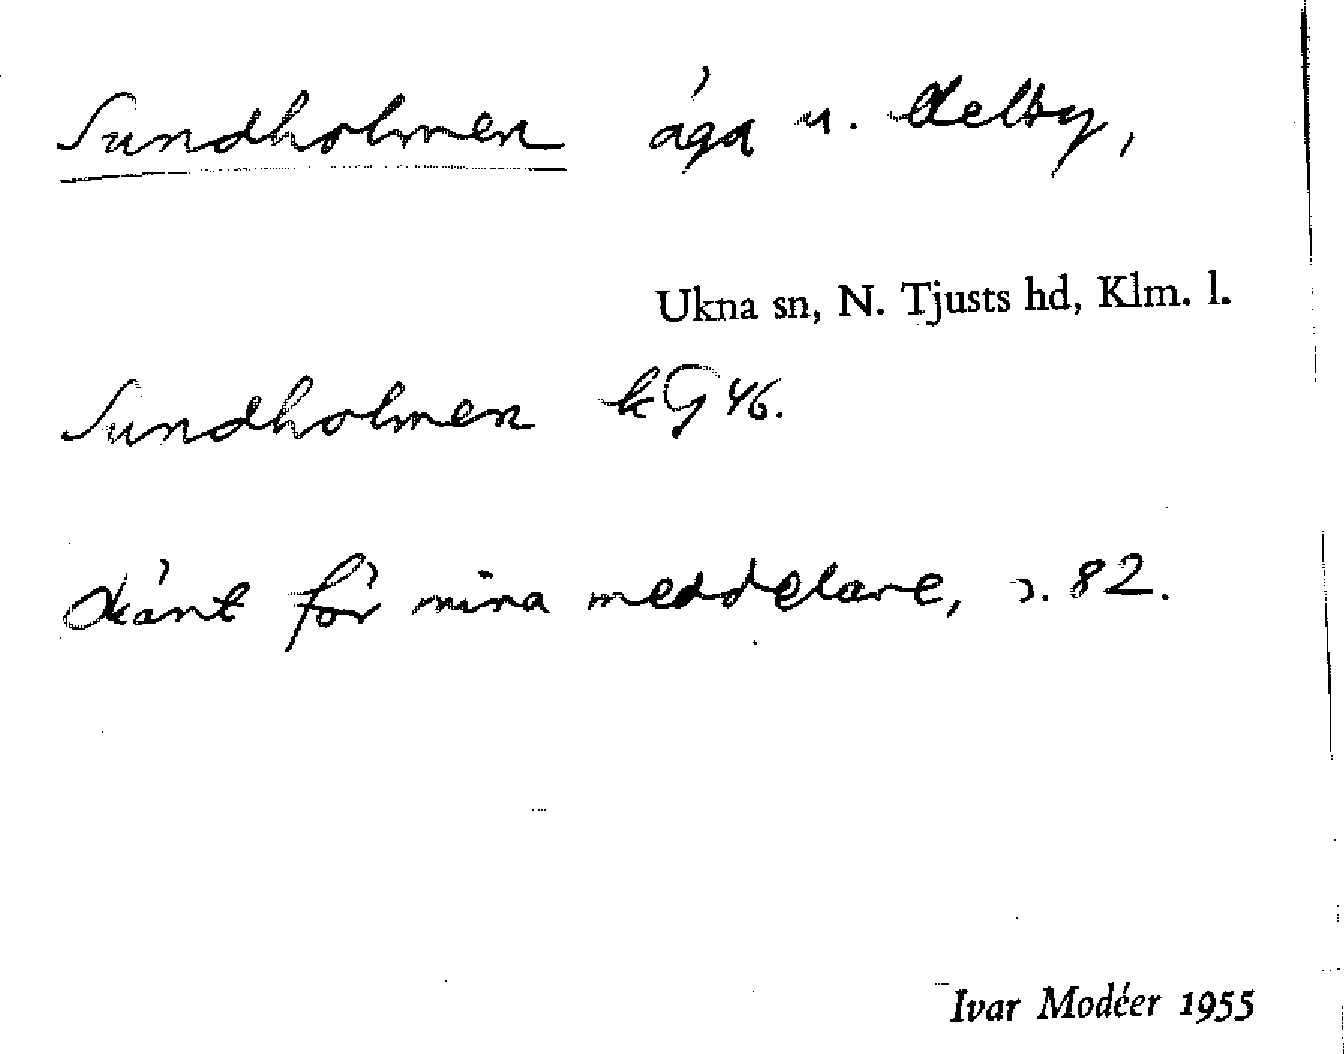 Sundholmen äga u. Oelby,
Ukna sn, N. Tjusts hd, Klm. l.
Sundholmen kG 46.
Okänt för mina meddelare, s. 82.
Ivar Modéer 1955